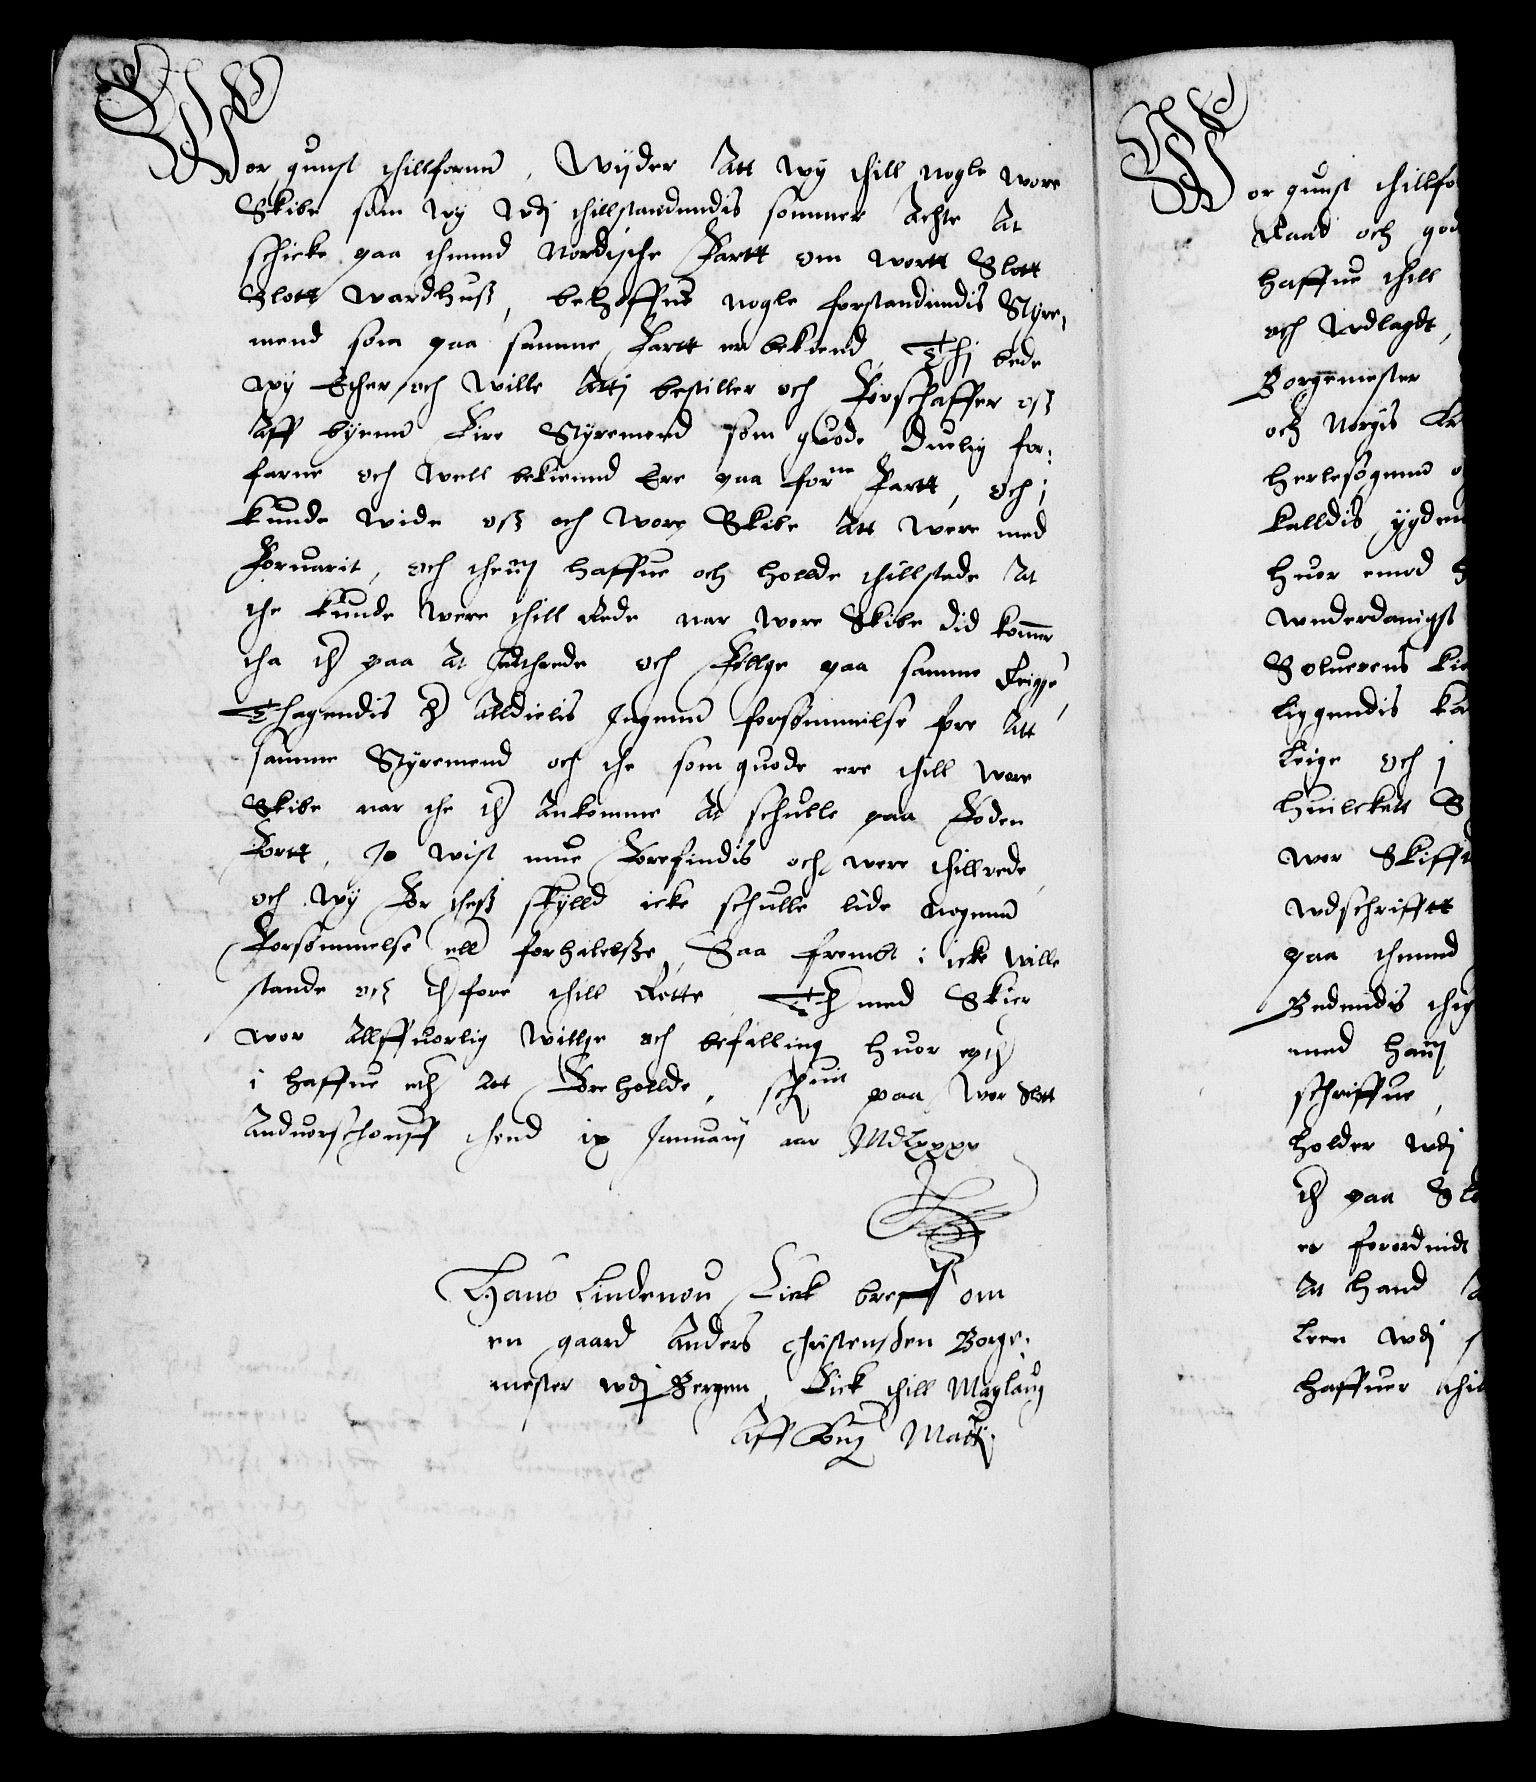 Wor gunst thillfornn, Wyder Att wy thill nogle wore
Skibe som wy wdj thillstandendis sommer Achte At
schicke paa thennd Nordische Fartt om wortt Slott
Slott Wardhuß, behøffue nogle forstandendis Styre,
mend som paa samme Fartt er bekiend, Thj bede
wy Ether och wille Attj bestiller och Forschaffer oß
Aff byenn Fire Styremend som guode duelig for:
farne och well bekiennd Ere paa forne Fartt, och i
kunde wide oß och wore Skibe Att were med
Foruarit, och thennj haffue och hollde thillstede At
the kunde were thill Rede nar wore Skibe did kommer
tha ther paa At Indthrede och Føllge paa samme Reigße,
Thagendis her Alldielis Ingenn forsømmelse fore Att
samme Styremend och the som guode ere thill wore
Skibe nar the ther Ankomme At schulle paa Foden
Fortt, Jo wist mue Forefindis och were thillrede,
och wy For theß skylld icke schulle lide nogenn
Forsømmelse eller forhaleslße, Saa fremdt i icke wille
stande oß therfore thill Rette, Ther med Skier
wor Allffuorlig willge och befalling huor epther
i haffue ether Att Foreholde, schreffuit paa wor Slott
Anduorschouff thend ix Januarij aar MdLxxxv
Hans Lindenou Fick breff om
en gaard Anders Christenßen Borge:
mester wdj Bergen, Fick thill Maglaug
Aff Kong Matt:
Wor gunst thillfo
Raad och god
haffue thill
och Udlagdt,
Borgemester
och Norgis
herlesognnd
kalldis ygden
huor emod
wnderdanigst
Soluerens
liggendis
Leige och i
huilckett S
wor Skiff
wdschrifftt
paa thennd
Bedendis thig
med hanj
schriffue,
holder wdj
ther paa
er forordnidt
At hand
leen wdj
haffuer thil